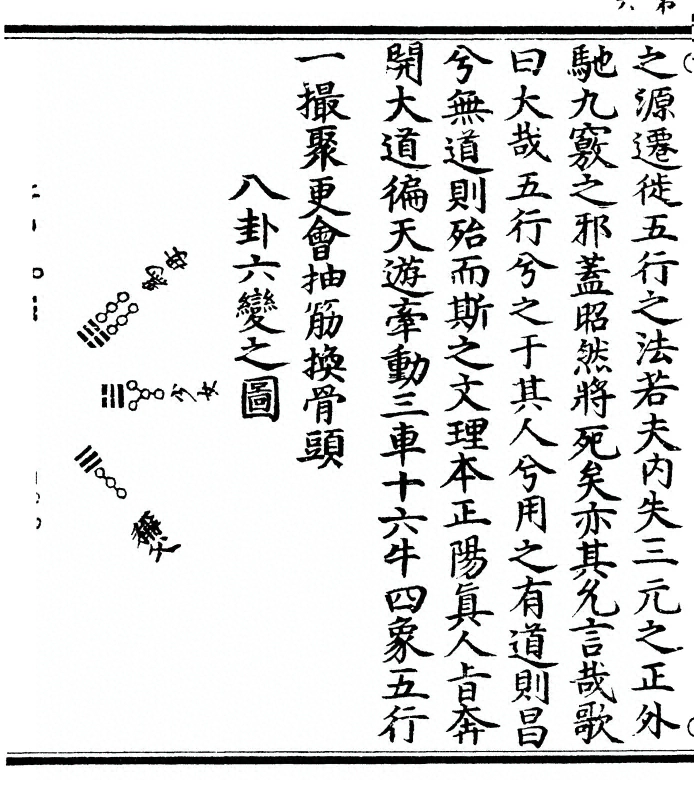 之源遷徙五行之法若夫内失三元之正外
馳九竅之邪蓋昭然將死矣亦其允言哉歌
曰大哉五行兮之于其人兮用之有道則昌
兮無道則殆而斯之文理本正陽眞人旨奔
開大道徧天遊牽動三車十六牛四象五行
一撮聚更會抽筋換骨頭
八卦六變之圖
少女